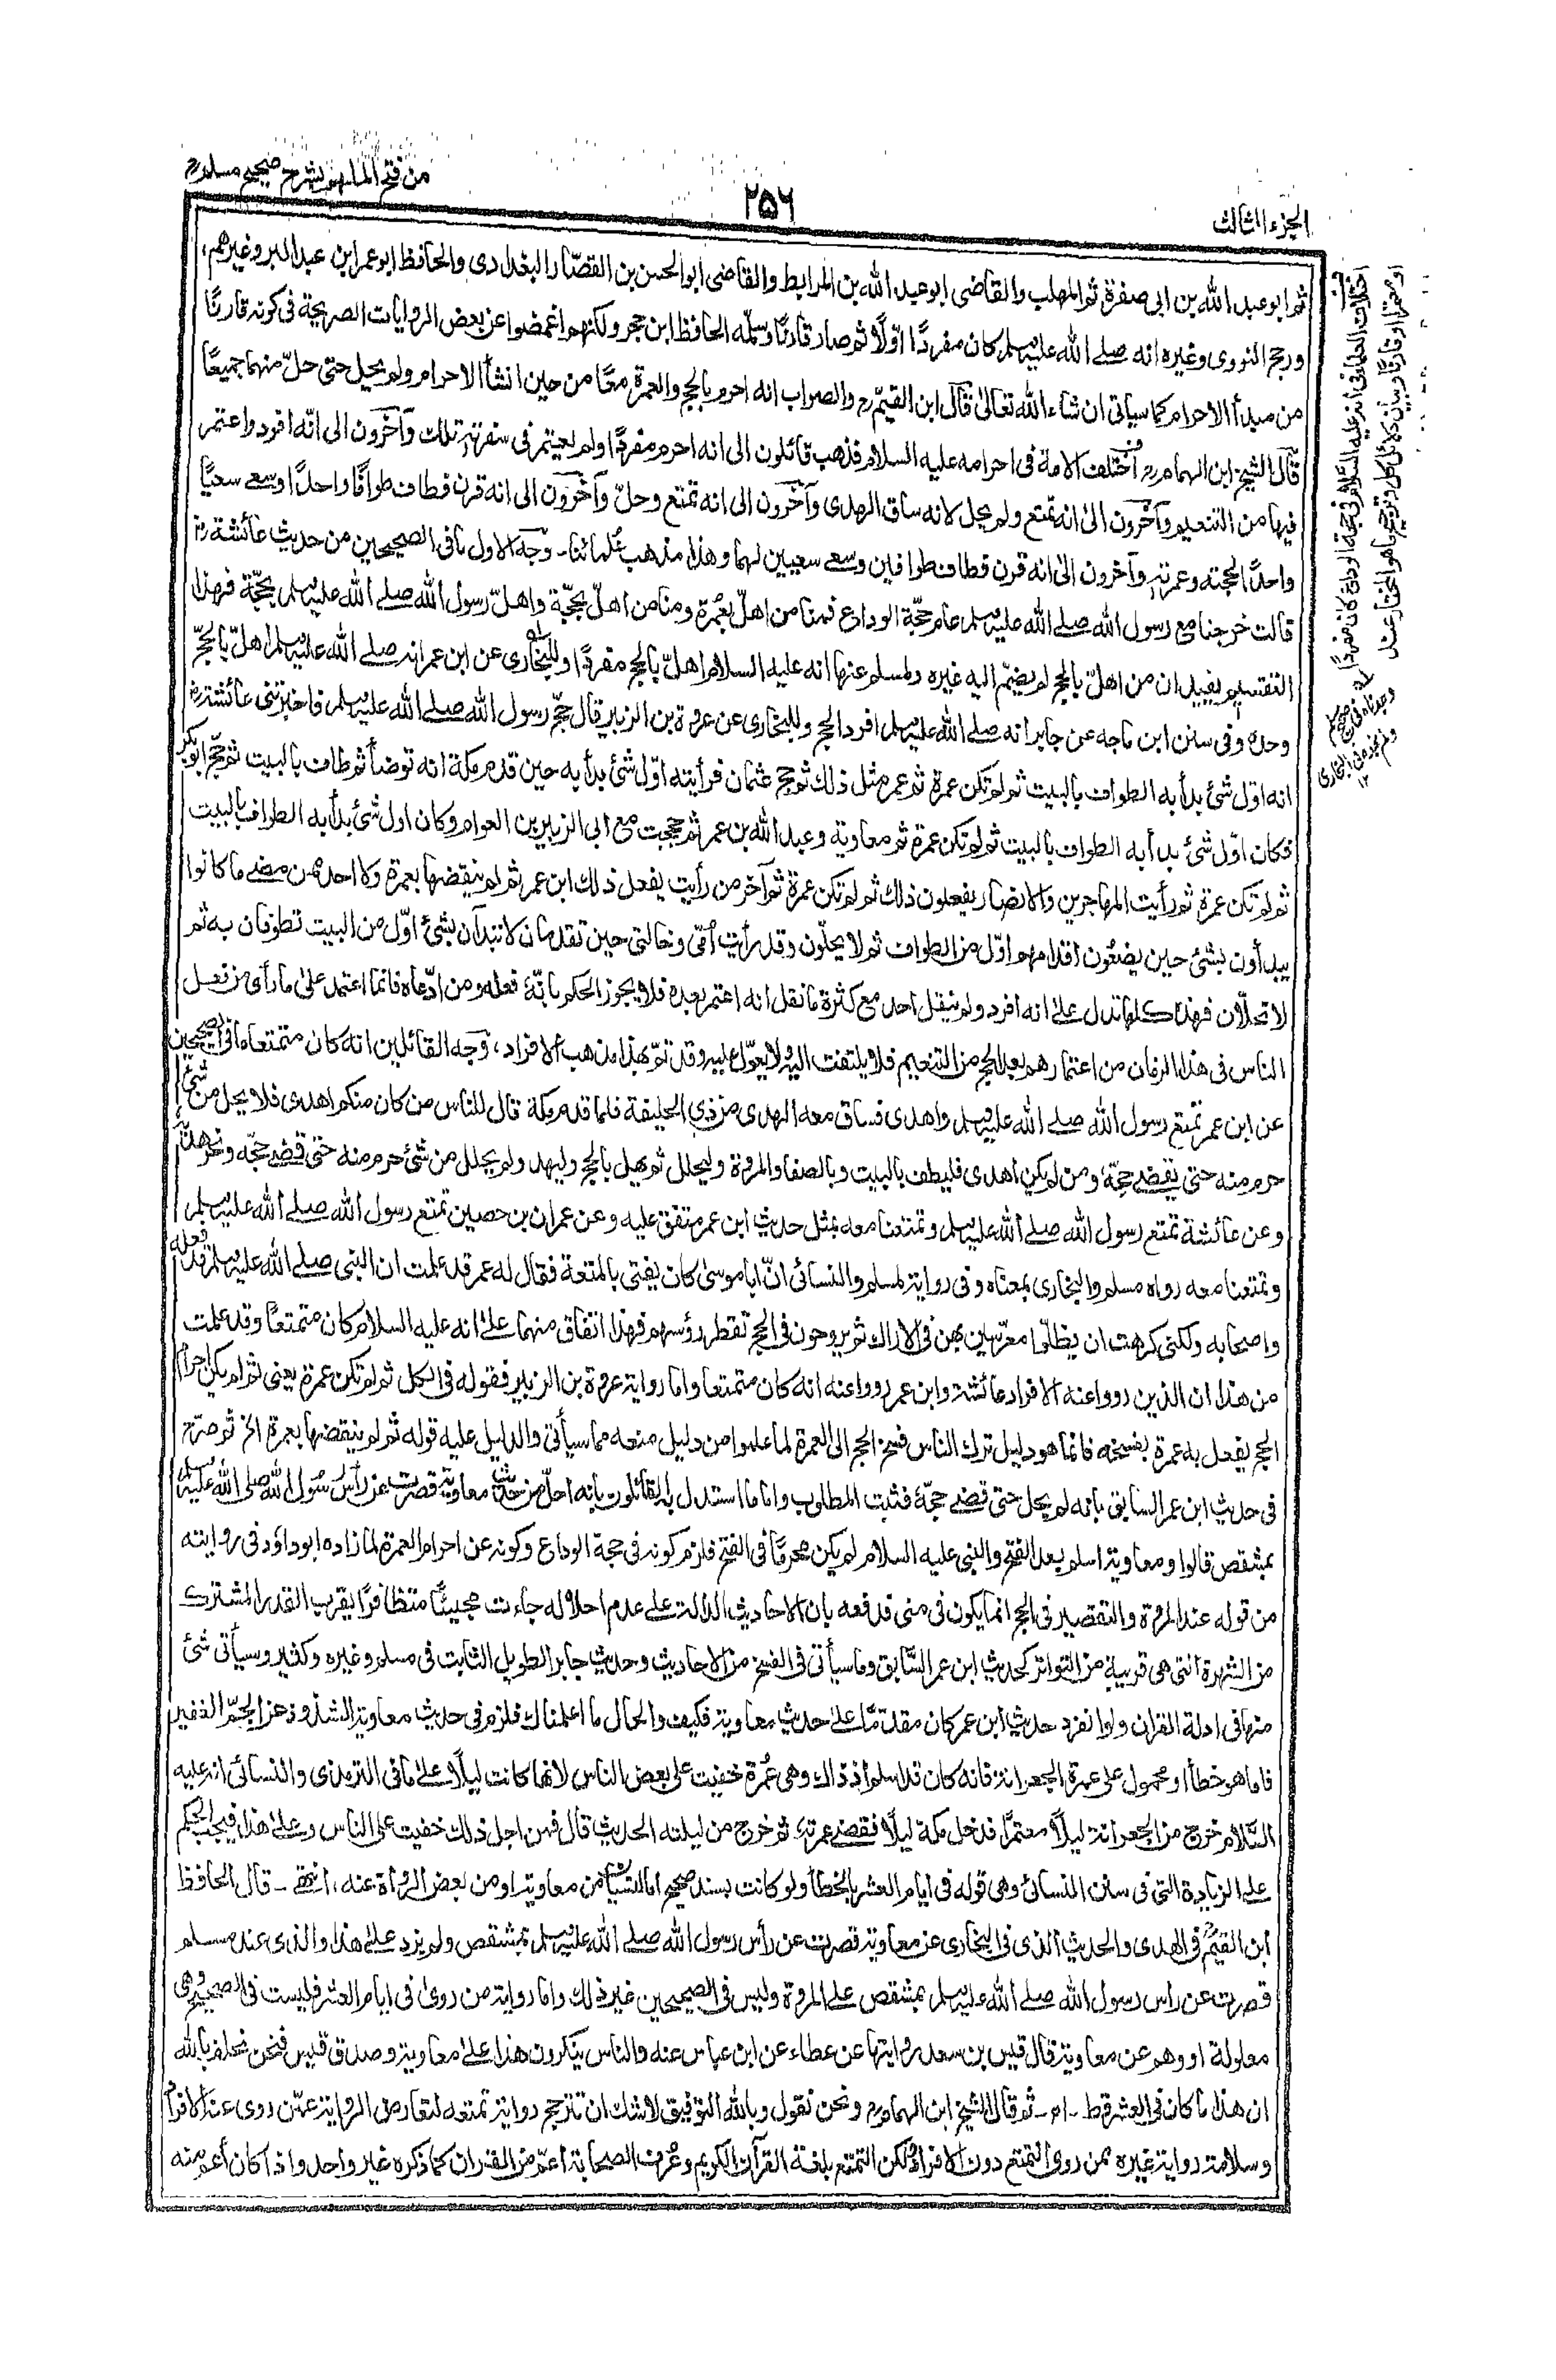 الجزء الثالث
٢٥٦
من فتح الملهم بشرح صحيح مسلم
ثم ابو عبد الله بن ابى صفرة ثم المهلب والقاضى ابو عبد الله بن المرابط والقاضى ابو الحسن بن القصّار البغدادى والحافظ ابو عمر ابن عبد البر وغيرهم،
ورجح النووى وغيره انه صلے الله عليه وسلم كان مفردًا اوّلًا ثم صار قارنًا وسلّمه الحافظ ابن حجر ولكنهم اغمضوا عن بعض الروايات الصريحة فى كونه قارنًا
من مبدأ الاحرام كما سياتى ان شاء الله تعالىٰ قال ابن القيّم رح والصواب انه احرم بالحج والعمرة معًا من حين انشأ الاحرام ولم يحل حتى حلّ منهما جميعًا
قال الشيخ ابن الهمام رح اُختلف الامة فى احرامه عليه السلام فذهب قائلون الى انه احرم مفردًا ولم يعتمر فى سفرته تلك وآخرون الى انّه افرد واعتمر
فيها من التنعيم وآخرون الىٰ انه تمتع ولم يحل لانه ساق الهدى وآخرون الى انه تمتع وحلّ وآخرون الى انه قرن فطاف طوافًا واحدًا وسعے سعيًا
واحدًا لحجته وعمرته وآخرون الىٰ انه قرن فطاف طوافين وسعے سعيين لهما وهذا مذهب عُلمائنا - وجه الاول مافى الصحيحين من حديث عائشة رض
قالت خرجنا مع رسول الله صلے الله عليه وسلم عام حجّة الوداع فمنا من اهلّ بعُمرة ومنا من اهلّ بحجّة واهلّ رسول الله صلے الله عليه وسلم بحجّة فهذا
التقسيم يفيد ان من اهلّ بالحج لم يضمّ اليه غيره ولمسلم عنها انه عليه السلام اهلّ بالحج مفردًا وللبخارى عن ابن عمر انه صلے الله عليه وسلم اهلّ بالحجّ
وحده وفى سنن ابن ماجه عن جابر انه صلے الله عليه وسلم افرد الحج وللبخارى عن عروة بن الزبير قال حجّ رسول الله صلے الله عليه وسلم فاخبرتنى عائشة رض
انه اوّل شئ بدأ به الطواف بالبيت ثم لم تكن عمرة ثم عمر مثل ذلك ثم حج عثمان فرأيته اوّل شئ بدأ به حين قدم مكة انه توضأ ثم طاف بالبيت ثم حجّ ابو بكر
فكان اوّل شئ بدأ به الطواف بالبيت ثم لم تكن عمرة ثم معاوية وعبد الله بن عمر ثم حججت مع ابى الزبير بن العوام وكان اول شئ بدأ به الطواف بالبيت
ثم لم تكن عمرة ثم رأيت المهاجرين والانصار يفعلون ذلك ثم لم تكن عمرة ثم آخر من رأيت يفعل ذلك ابن عمر ثم لم ينقضها بعمرة ولا احد ممن مضے ما كانوا
يبدأون بشئ حين يضعُون اقدامهم اوّل من الطواف ثم لا يحلّون وقد رأيت اُمّى وخالتى حين تقدمان لا تبدآن بشئ اوّل من البيت تطوفان به ثم
لا تحلّان فهذه كلها تدل علىٰ انه افرد ولم ينقل احد مع كثرة ما نقل انه اعتمر بعده فلا يجوز الحكم بانّه فعله ومن ادّعاه فانما اعتمد علىٰ ما رأى من فعل
الناس فى هذا الزمان من اعتمارهم بعد الحج من التنعيم فلا يلتفت اليه ولا يعوّل عليه وقد تمّ بهذا مذهب الافراد، وجه القائلين انه كان متمتعا ما فى الصحيحين
عن ابن عمر تمتع رسول الله صلے الله عليه وسلم واهدى فساق معه الهدى من ذى الحليفة فلما قدم مكة قال للناس من كان منكم اهدى فلا يحل من شئ
حرم منه حتى يقضے حجّه ومن لم يكن اهدى فليطف بالبيت وبالصفا والمروة وليحلل ثم يهل بالحج وليهد ولم يحلل من شئ حرم منه حتى قضے حجّه ونحر هديه
وعن عائشة تمتع رسول الله صلے الله عليه وسلم وتمتعنا معه بمثل حديث ابن عمر متفق عليه وعن عمران بن حصين تمتع رسول الله صلے الله عليه وسلم
وتمتعنا معه رواه مسلم والبخارى بمعناه وفى رواية لمسلم والنسائى انّ ابا موسىٰ كان يفتى بالمتعة فقال له عمر قد علمت ان النبى صلے الله عليه وسلم قد فعله
واصحابه ولكنى كرهت ان يظلّوا معرّسين بهن فى الاراك ثم يروحون فى الحج تقطر رؤسهم فهذا اتفاق منهما علىٰ انه عليه السلام كان متمتعًا وقد علمت
من هذا ان الذين رووا عنه الافراد عائشة وابن عمر رووا عنه انه كان متمتعا واما رواية عروة بن الزبير فقوله فى الكل ثم لم تكن عمرة يعنى ثم لم يكن احرام
الحج يفعل به عمرة بفسخه فانما هو دليل ترك الناس فسخ الحج الى العمرة لما علموا من دليل منعه مما سيأتى والدليل عليه قوله ثم لم ينقضها بعمرة الخ ثم صرّح
فى حديث ابن عمر السابق بانه لم يحل حتى قضے حجّه فثبت المطلوب واما ما استدل به القائلون بانه احلّ من حديث معاوية قصرت عن رأس رسول الله صلى الله عليه وسلم
بمشقص قالوا ومعاوية اسلم بعد الفتح والنبى عليه السلام لم يكن محرمًا فى الفتح فلزم كونه فى حجة الوداع وكونه عن احرام العمرة لما زاده ابوداؤد فى روايته
من قوله عند المروة والتقصير فى الحج انما يكون فى منى فدفعه بان الاحاديث الدالة علے عدم احلاله جاءت مجيئًا متظافرًا يقرب القدر المشترك
من الشهرة التى هى قريبة من التواتر كحديث ابن عمر السّابق وما سيأتى فى الفسخ من الاحاديث وحديث جابر الطويل الثابت فى مسلم وغيره وكثير وسيأتى شئ
منها فى ادلة القران ولو انفرد حديث ابن عمر كان مقدمًا علے حديث معاوية فكيف والحال ما اعلمناك فلزم فى حديث معاوية الشذوذ عن الجمّ الغفير
فاما هو خطأ او محمول على عمرة الجعرانة فانه كان قد اسلم اذ ذاك وهى عُمرة خفيت على بعض الناس لانها كانت ليلًا علے ما فى الترمذى والنسائى انه عليه
السّلام خرج من الجعرانة ليلًا معتمرًا فدخل مكة ليلًا فقضے عمرته ثم خرج من ليلته الحديث قال فمن اجل ذلك خفيت على الناس وعلے هذا فيجب الحكم
علے الزيادة التى فى سنن النسائى وهى قوله فى ايام العشر بالخطأ ولو كانت بسند صحيح اما للنسيان من معاوية او من بعض الرواة عنه، انتهے - قال الحافظ
ابن القيّم فى الهدى والحديث الذى فى البخارى عن معاوية قصرت عن رأس رسول الله صلے الله عليه وسلم بمشقص ولم يزد علے هذا والذى عند مسلم
قصرت عن راس رسول الله صلے الله عليه وسلم بمشقص علے المروة وليس فى الصحيحين غير ذلك واما رواية من روىٰ فى ايام العشر فليست فى الصحيح وهى
معلولة او وهم عن معاوية قال قيس بن سعد راويتها عن عطاء عن ابن عباس عنه والناس ينكرون هذا علے معاوية وصدق قيس فنحن نحلف بالله
ان هذا ما كان فى العشر قط - اه - ثم قال الشيخ ابن الهمام رح ونحن نقول وبالله التوفيق لا شك ان تترجح رواية تمتعه لتعارض الرواية عمّن روى عنه الافراد
وسلامة رواية غيره ممن روى التمتع دون الافراد ولكن التمتع بلغة القرآن الكريم وعُرف الصحابة اعمّ من القران كما ذكره غير واحد واذا كان أعم منه
اختلاف العلماء فى انه عليه السلام فى حجة الوداع كان مفردًا
او معتمرًا او قارنًا وبيان دلائل كل وترجيح ما هو المختار عند